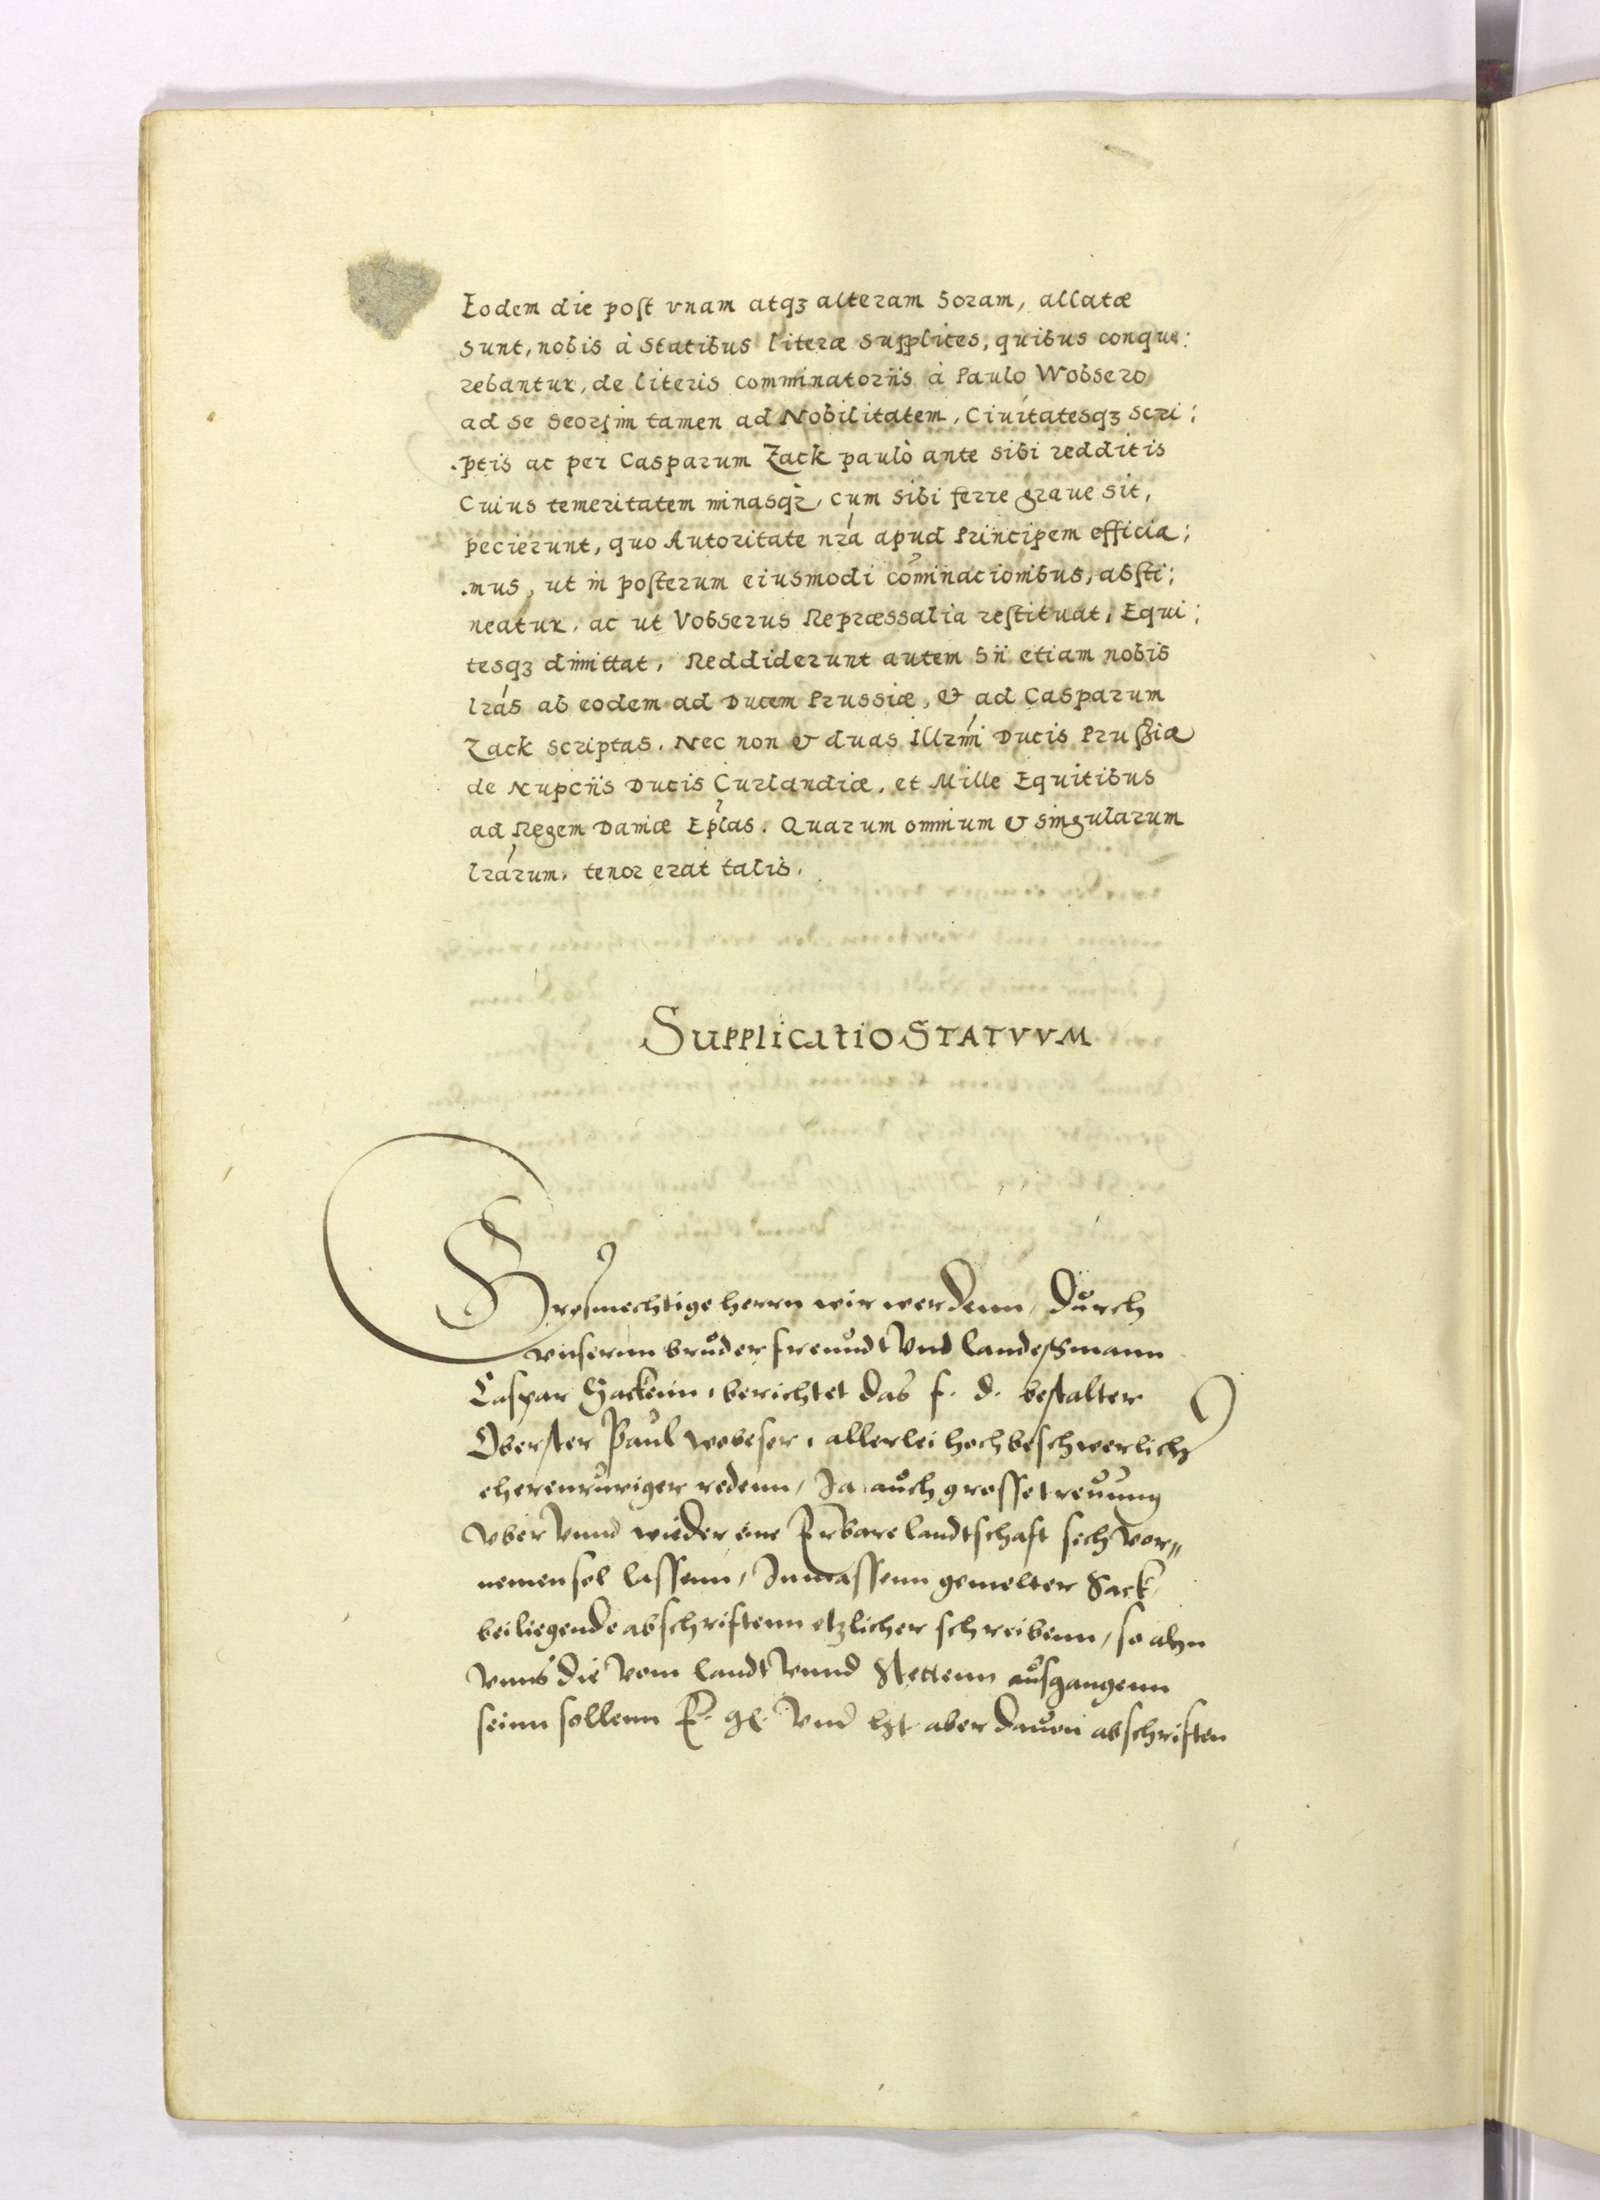 Eodem die post vnam atqꝫ alteram horam, allatæ
sunt, nobis à Statibus literæ supplices, quibus conque:
rebantur, de literis comminatorijs à Paulo Wobsero
ad se seorsim tamen ad Nobilitatem, Ciuitatesqꝫ scri:
.ptis ac per Casparum Zack paulò ante sibi redditis
Cuius temeritatem minasqꝫ, cum sibi ferre graue sit,
pecierunt, quo Autoritate nrá apud Principem efficia:
.mus, ut in posterum eiusmodi cōminacionibus, absti:
neatur, ac ut Vobserus Repræssalia restituat, Equi:
tesqꝫ dimittat, Reddiderunt autem hij etiam nobis
lrás ab eodem ad Ducem Prussiæ, & ad Casparum
Zack scriptas. Nec non & duas Illrmi Ducis Prußiæ
de Nupcijs Ducis Curlandiæ, et Mille Equitibus
ad Regem Daniæ Eplas. Quarum omnium & singularum
lrárum, tenor erat talis.
Supplicatio STATVVM
Grosmechtige herrn wir werdenn, durch
vnsernn bruder freundt vnd landeßmann
Caspar Zackenn, berichtet das f. d. bestalter
Oberster Paul wobeser, allerlei hochbeschwerlich
eherenruriger redenn, Ja auch grosse treuung
vber vnnd wieder eine Erbare landtschaft sich vor„
nemen sol lassenn, Inmassenn gemelter Sack
beiliegende abschriftenn etzlicher schreibenn, so ahn
vnns die vom landt vnnd Stettenn ausgangenn
seinn sollenn E. gl. vnd ht. aber dauon abschriften